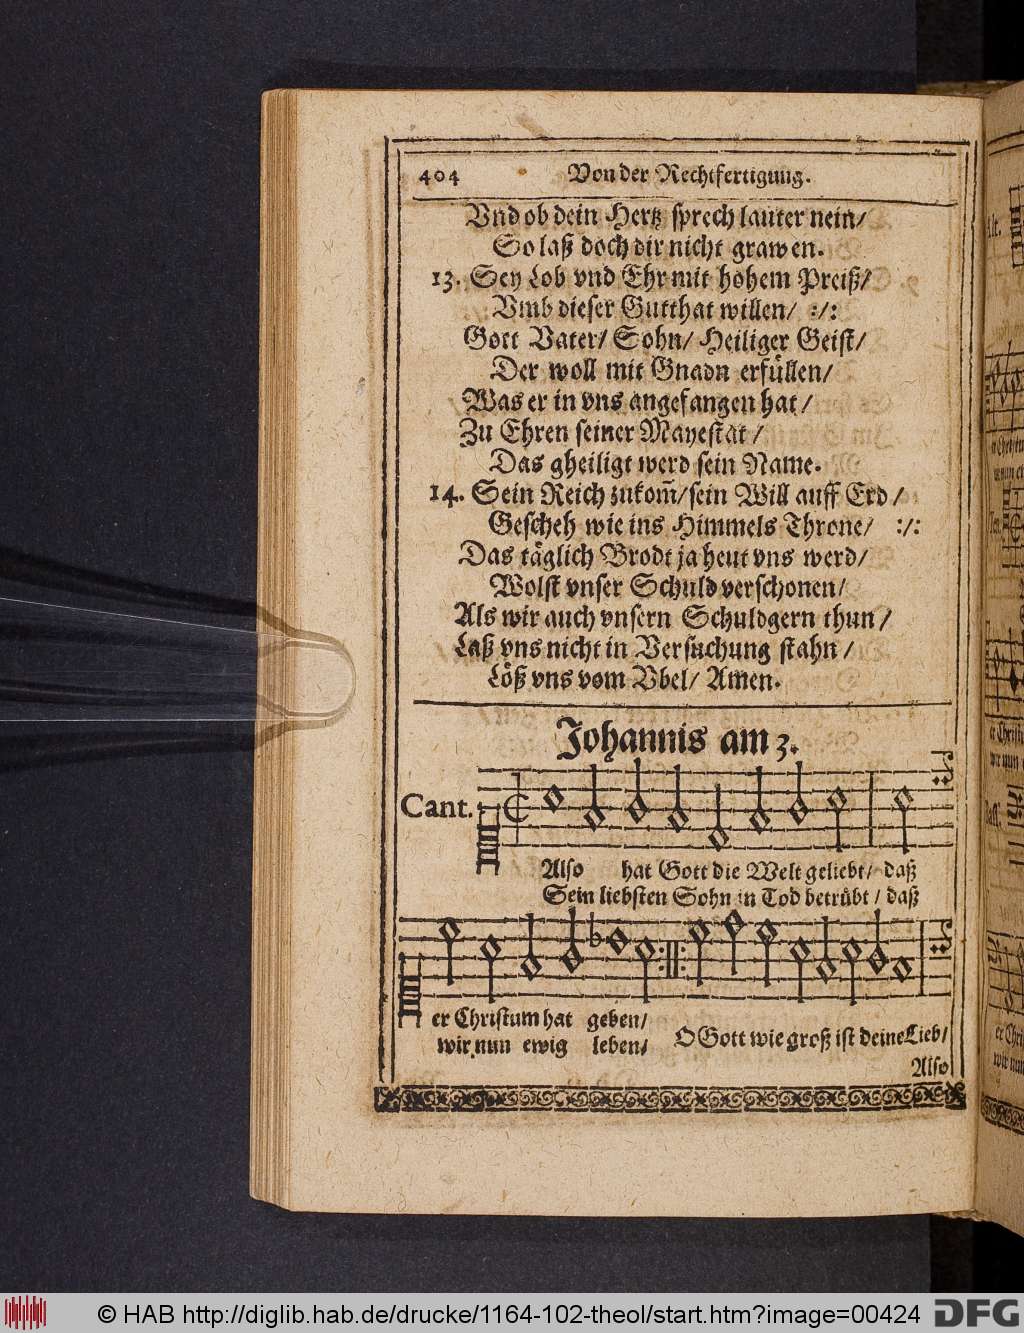 404 Von der Rechtfertigung.
Vnd ob dein Hertz sprech lauter nein/
So laß doch dir nicht grawen.
13. Sey Lob vnd Ehr mit hohem Preiß/
Vmb dieser Gutthat willen/ :/:
Gott Vater/ Sohn/ Heiliger Geist/
Der woll mit Gnadn erfüllen/
Was er in vns angefangen hat/
Zu Ehren seiner Mayestat/
Das gheiligt werd sein Name.
14. Sein Reich zukom̃/sein Will auff Erd/
Gescheh wie ins Himmels Throne/ :/:
Das täglich Brodt ja heut vns werd/
Wolst vnser Schuld verschonen/
Als wir auch vnsern Schuldgern thun/
Laß vns nicht in Versuchung stahn/
Löß vns vom Vbel/ Amen.
Johannis am 3.
Cant.
Also hat Gott die Welt geliebt/ daß
Sein liebsten Sohn in Tod betrübt/ daß
er Christum hat geben/
wir nun ewig leben/ O Gott wie groß ist deine Lieb/
Also
© HAB http://diglib.hab.de/drucke/1164-102-theol/start.htm?image=00424 DFG